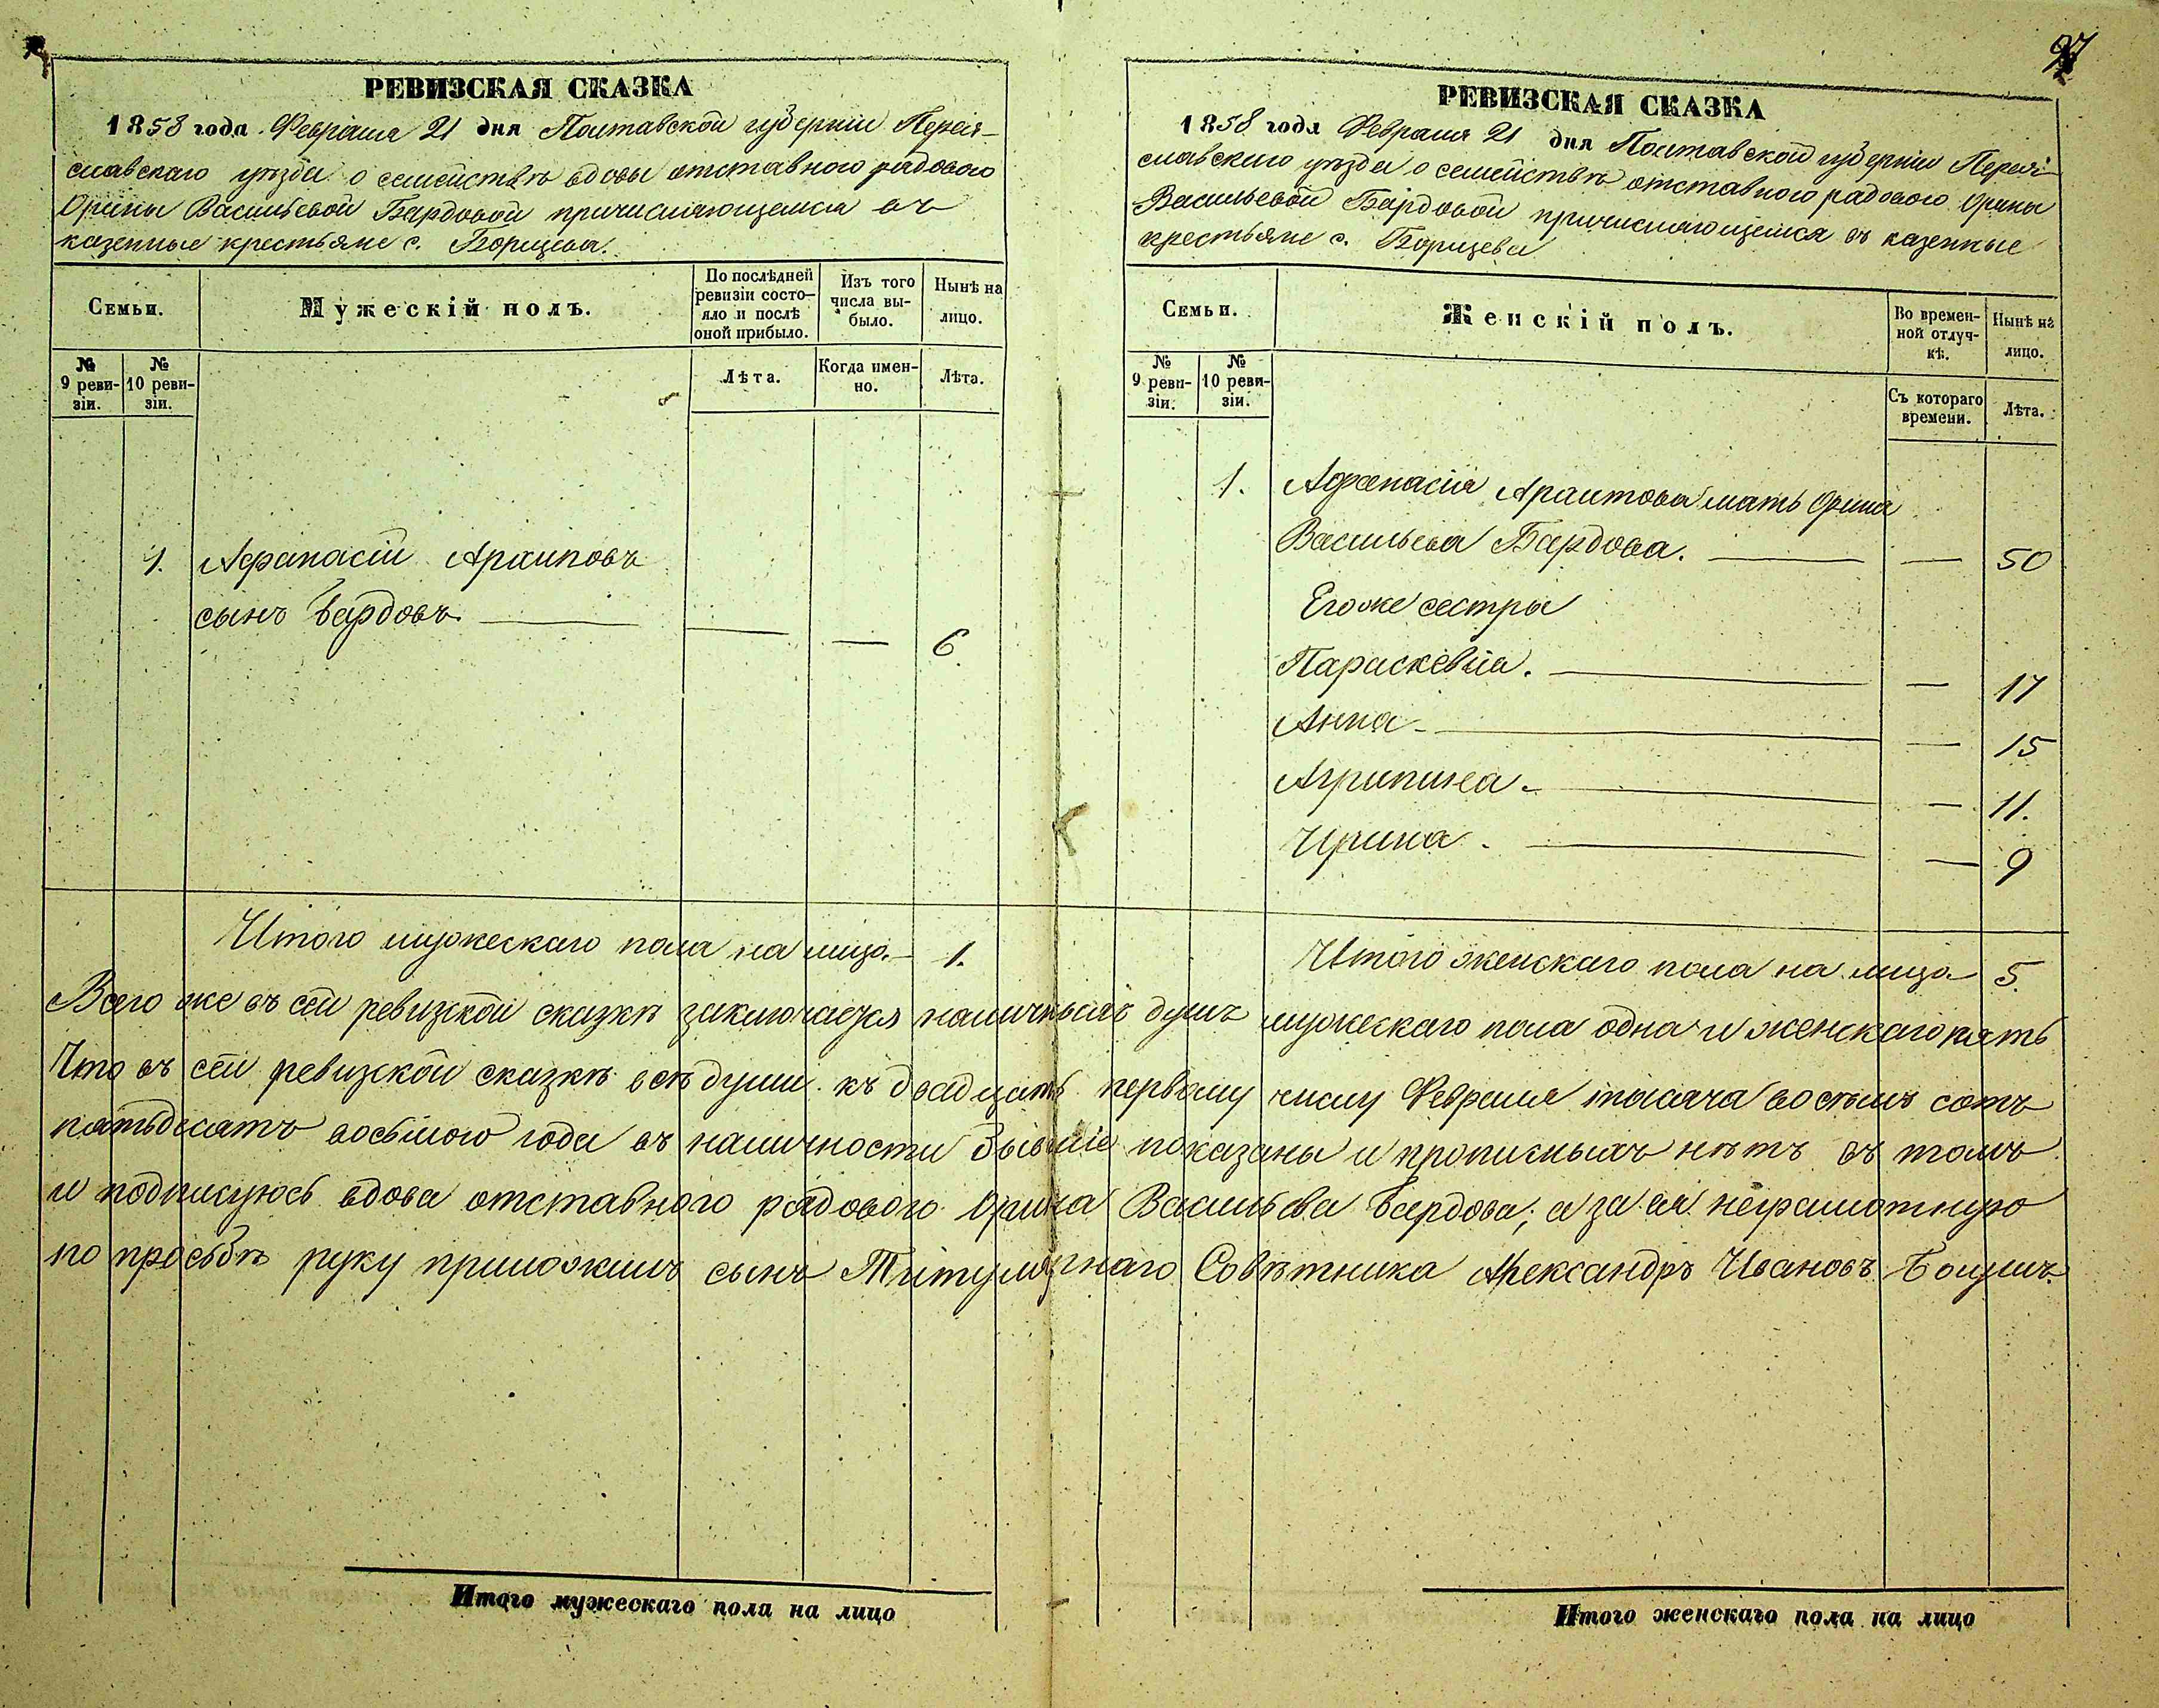 97
РЕВИЗСКАЯ СКАЗКА
1858 года Февраля 21 дня Полтавской губерніи Перея-
славскаго уѣзда о семействѣ вдовы отставного рядового
Орины Васильевой Бардовой причисляющемся въ
казенные крестьяне с. Борщева.
Семьи.
Мужескій полъ.
По послѣдней
ревизіи состо-
яло и послѣ
оной прибыло.
Изъ того
числа вы-
было.
Нынѣ на
лицо.
№
9 реви-
зіи.
№
10 реви-
зіи.
Лѣта.
Когда имен-
но.
Лѣта.
1. Афанасій Архиповъ
сынъ Бардовъ. — — — 6.
Итого мужескаго пола на лицо. — 1.
РЕВИЗСКАЯ СКАЗКА
1858 года Февраля 21 дня Полтавской губерніи Перея-
славскаго уѣзда о семействѣ отставного рядового Орины
Васильевой Бардовой причисляющемся въ казенные
крестьяне с. Борщева
Семьи.
Женскій полъ.
Во времен-
ной отлуч-
кѣ.
Нынѣ на
лицо.
№
9 реви-
зіи.
№
10 реви-
зіи.
Съ котораго
времени.
Лѣта.
1. Афанасія мать Орина
Васильева Бардова. — — 50
Егоже сестры
Параскевія. — — 17
Анна — — 15
Агрипина. — — 11.
Ирина. — — 9
Итого женскаго пола на лицо — 5.
Всего же въ сей ревизкой сказкѣ заключается наличныхъ душъ мужескаго пола одна и женскаго пять
Что въ сей ревизкой сказкѣ всѣ души къ двадцать первому числу Февраля тысяча восемь сотъ
пятьдесятъ восьмого года въ наличности бывшіе показаны и прописныхъ нѣтъ въ томъ
и подписуюсь вдова отставного рядового Орина Васильева Бардова; а за ея неграмотную
по просьбѣ руку приложилъ сынъ Титулярнаго Совѣтника Александръ Ивановъ
Итого мужескаго пола на лицо
Итого женскаго пола на лицо